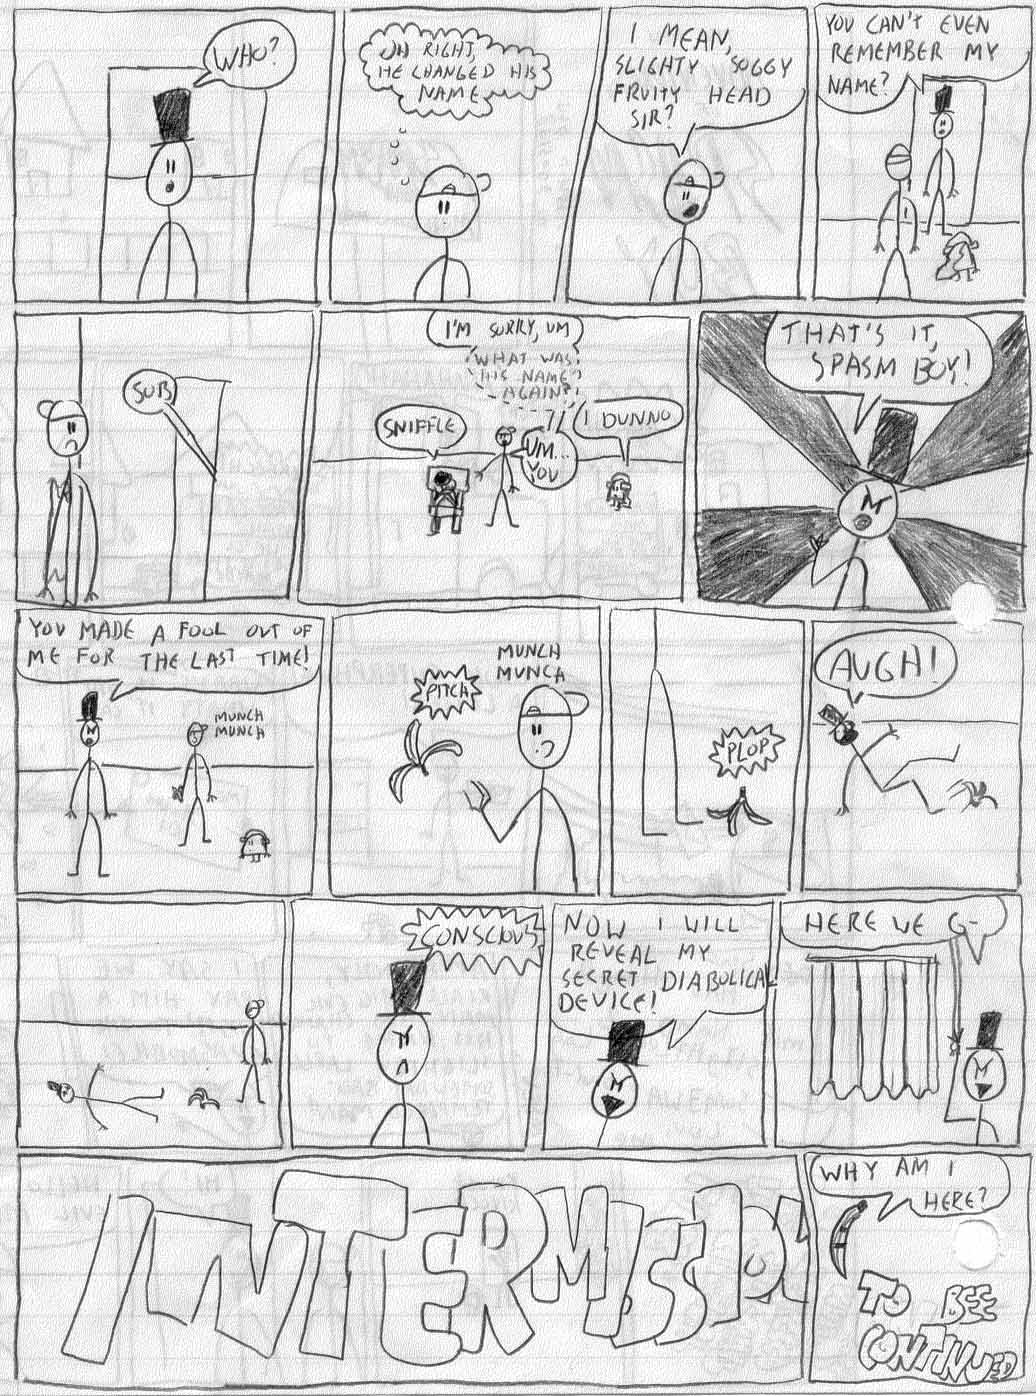 WHO?
OH RIGHT,
HE CHANGED HIS
NAME
I MEAN,
SLIGHTY SOGGY
FRUITY HEAD
SIR?
YOU CAN'T EVEN
REMEMBER MY
NAME?
SUB
I'M SORRY, UM
WHAT WAS
HIS NAME?
AGAIN?
SNIFFLE
UM...
YOU
I DUNNO
THAT'S IT,
SPASM BOY!
YOU MADE A FOOL OUT OF
ME FOR THE LAST TIME!
MUNCH
MUNCH
PITCH
MUNCH
MUNCH
PLOP
AUGH!
CONSCIOUS
NOW I WILL
REVEAL MY
SECRET DIABOLICAL
DEVICE!
HERE WE G-
INTERMISSION
WHY AM I
HERE?
TO BEE
CONTINUED